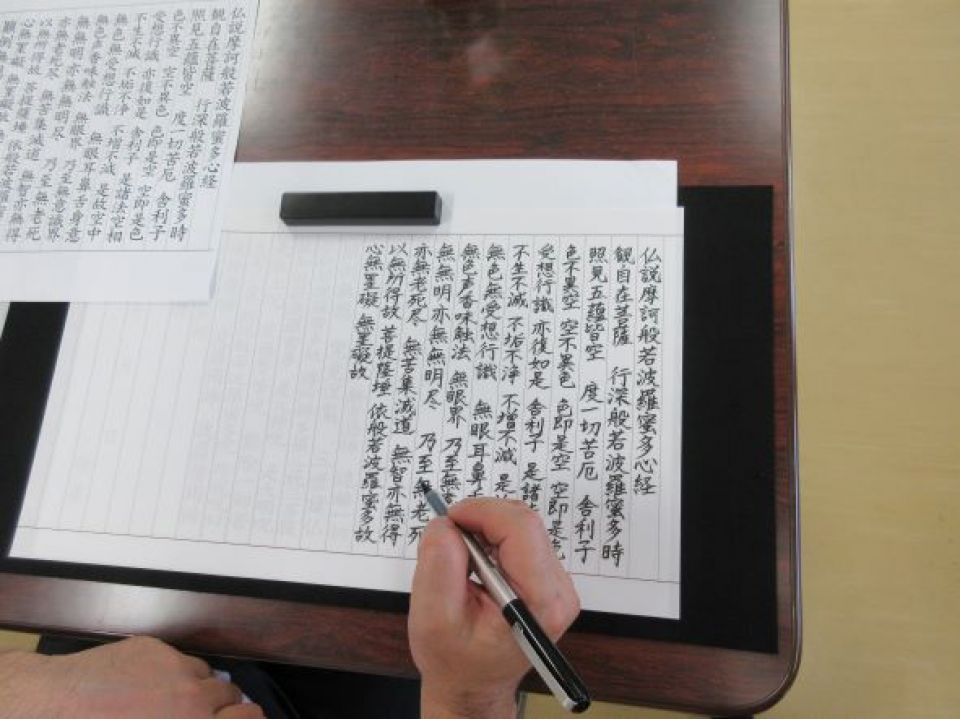 仏説摩訶般若波羅蜜多心経
観自在菩薩 行深般若波羅蜜多時
照見五蘊皆空 度一切苦厄 舎利子
色不異空 空不異色 色即是空 空即是色
受想行識 亦復如是 舎利子 是諸
不生不滅 不垢不浄 不増不減 是
無色無受想行識 無眼耳鼻
無色声香味触法 無眼界 乃至無
無無明亦無無明尽 乃至無老死
亦無老死尽 無苦集滅道 無智亦無得
以無所得故 菩提薩埵 依般若波羅蜜多故
心無罣礙 無罣礙故
仏説摩訶般若波羅蜜多心経
観自在菩薩 行深般若波羅蜜多時
照見五蘊皆空 度一切苦厄 舎利子
色不異空 空不異色 色即是空 空即是色
受想行識 亦復如是 舎利子 是諸法空相
不生不滅 不垢不浄 不増不減 是故空中
無色無受想行識 無眼耳鼻舌身意
無色声香味触法 無眼界 乃至無意識界
無無明亦無無明尽 乃至無老死
亦無老死尽 無苦集滅道 無智亦無得
以無所得故 菩提薩埵 依般若波羅蜜
心無罣礙 無罣礙故